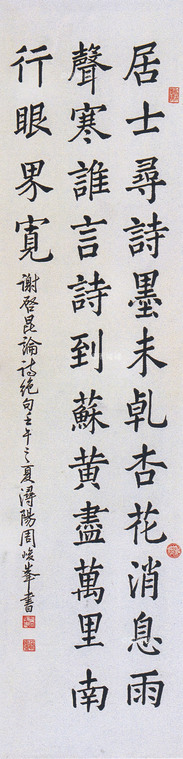 居士尋詩墨未乾杏花消息雨
聲寒誰言詩到蘇黄盡萬里南
行眼界寬
谢啓昆論诗绝句壬午之夏潯陽周峻峯書